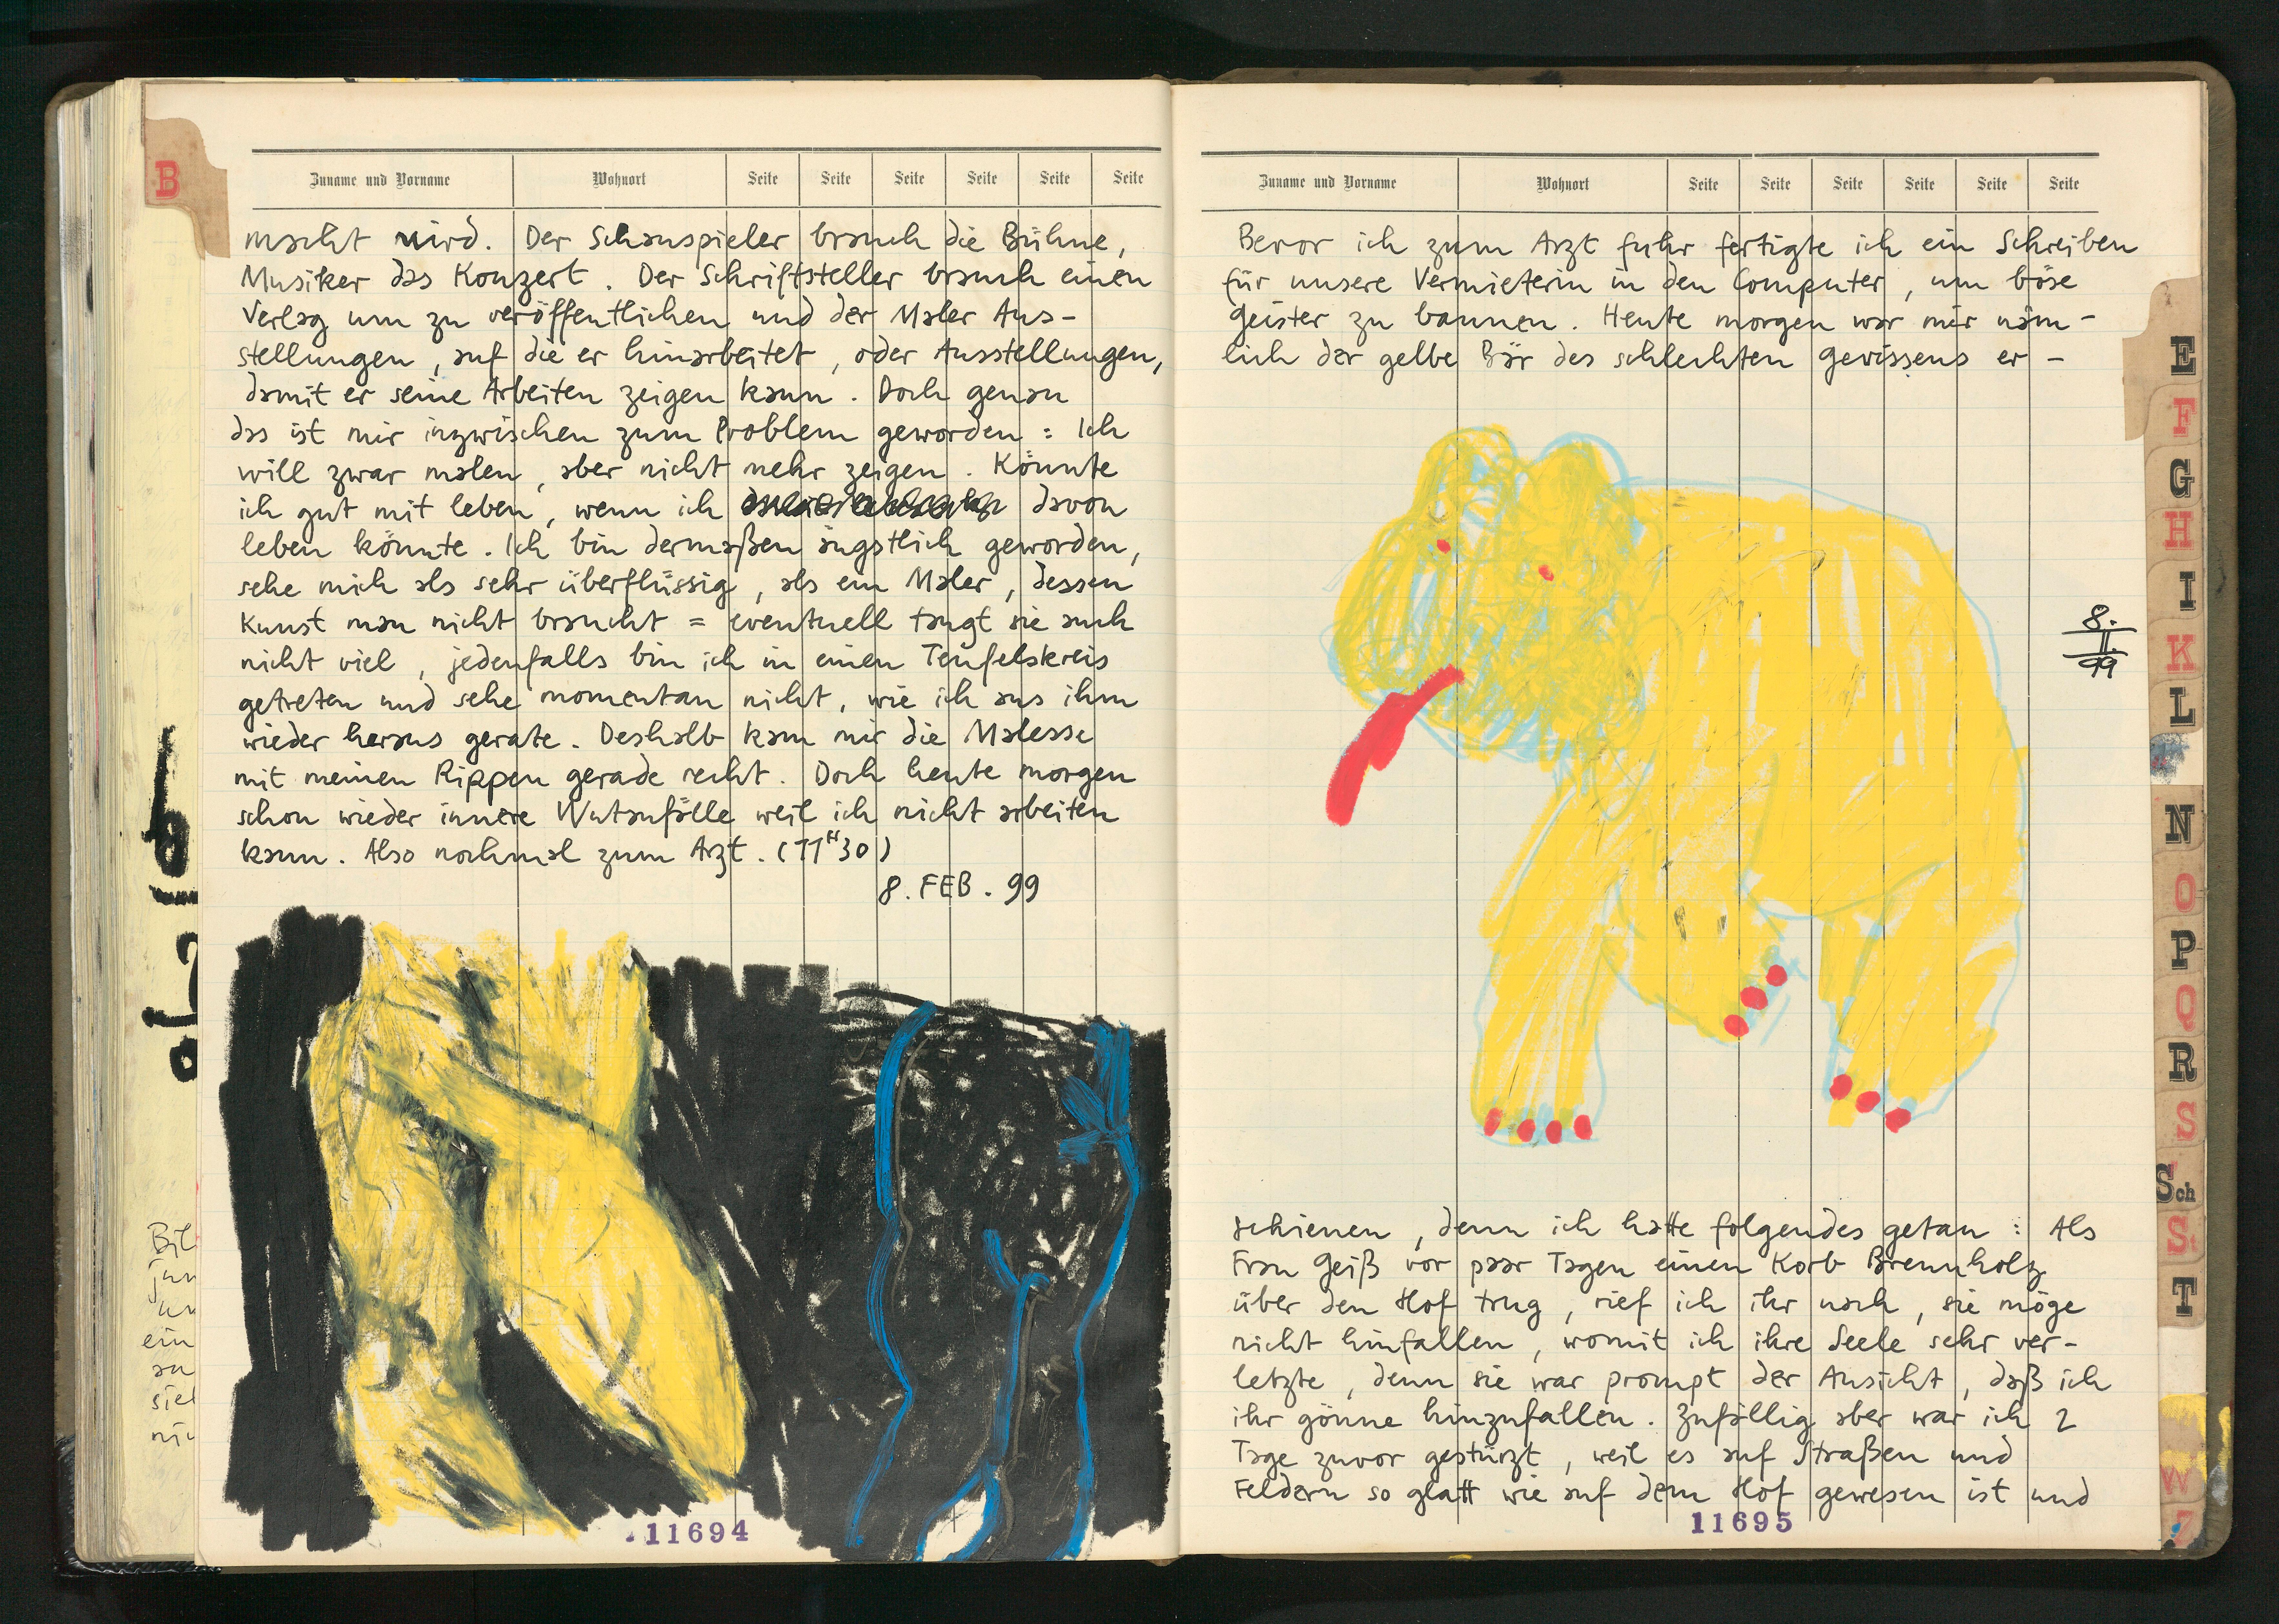 B
Zuname und Vorname Wohnort Seite Seite Seite Seite Seite Seite
macht wird. Der Schauspieler brauch die Bühne,
Musiker das Konzert. Der Schriftsteller brauch einen
Verlag um zu veröffentlichen und der Maler Aus-
stellungen, auf die er hinarbeitet, oder Ausstellungen,
damit er seine Arbeiten zeigen kann. Doch genau
das ist mir inzwischen zum Problem geworden: Ich
will zwar malen, aber nicht mehr zeigen. Könnte
ich gut mit leben, wenn ich davon
leben könnte. Ich bin dermaßen ängstlich geworden,
sehe mich als sehr überflüssig, als ein Maler, dessen
Kunst man nicht braucht = eventuell taugt sie auch
nicht viel, jedenfalls bin ich in einen Teufelskreis
getreten und sehe momentan nicht, wie ich aus ihm
wieder heraus gerate. Deshalb kam mir die Malesse
mit meinen Rippen gerade recht. Doch heute morgen
schon wieder innere Wutanfälle weil ich nicht arbeiten
kann. Also nochmal zum Arzt. (11H30)
8. FEB. 99
11694
Bil
jun
un
ein
an
siel
nic
Zuname und Vorname Wohnort Seite Seite Seite Seite Seite Seite
Bevor ich zum Arzt fuhr fertigte ich ein Schreiben
für unsere Vermieterin in den Computer, um böse
Geister zu bannen. Heute morgen war mir näm-
lich der gelbe Bär des schlechten Gewissens er-
8.
II.
99
schienen, denn ich hatte folgendes getan: Als
Frau Geiß vor paar Tagen einen Korb Brennholz
über den Hof trug, rief ich ihr nach, sie möge
nicht hinfallen, womit ich ihre Seele sehr ver-
letzte, denn sie war prompt der Ansicht, daß ich
ihr gönne hinzufallen. Zufällig aber war ich 2
Tage zuvor gestürzt, weil es auf Straßen und
Feldern so glatt wie auf dem Hof gewesen ist und
11695
E
F
G
H
I
K
L
N
O
P
Q
R
S
Sch
St
T
W
Z